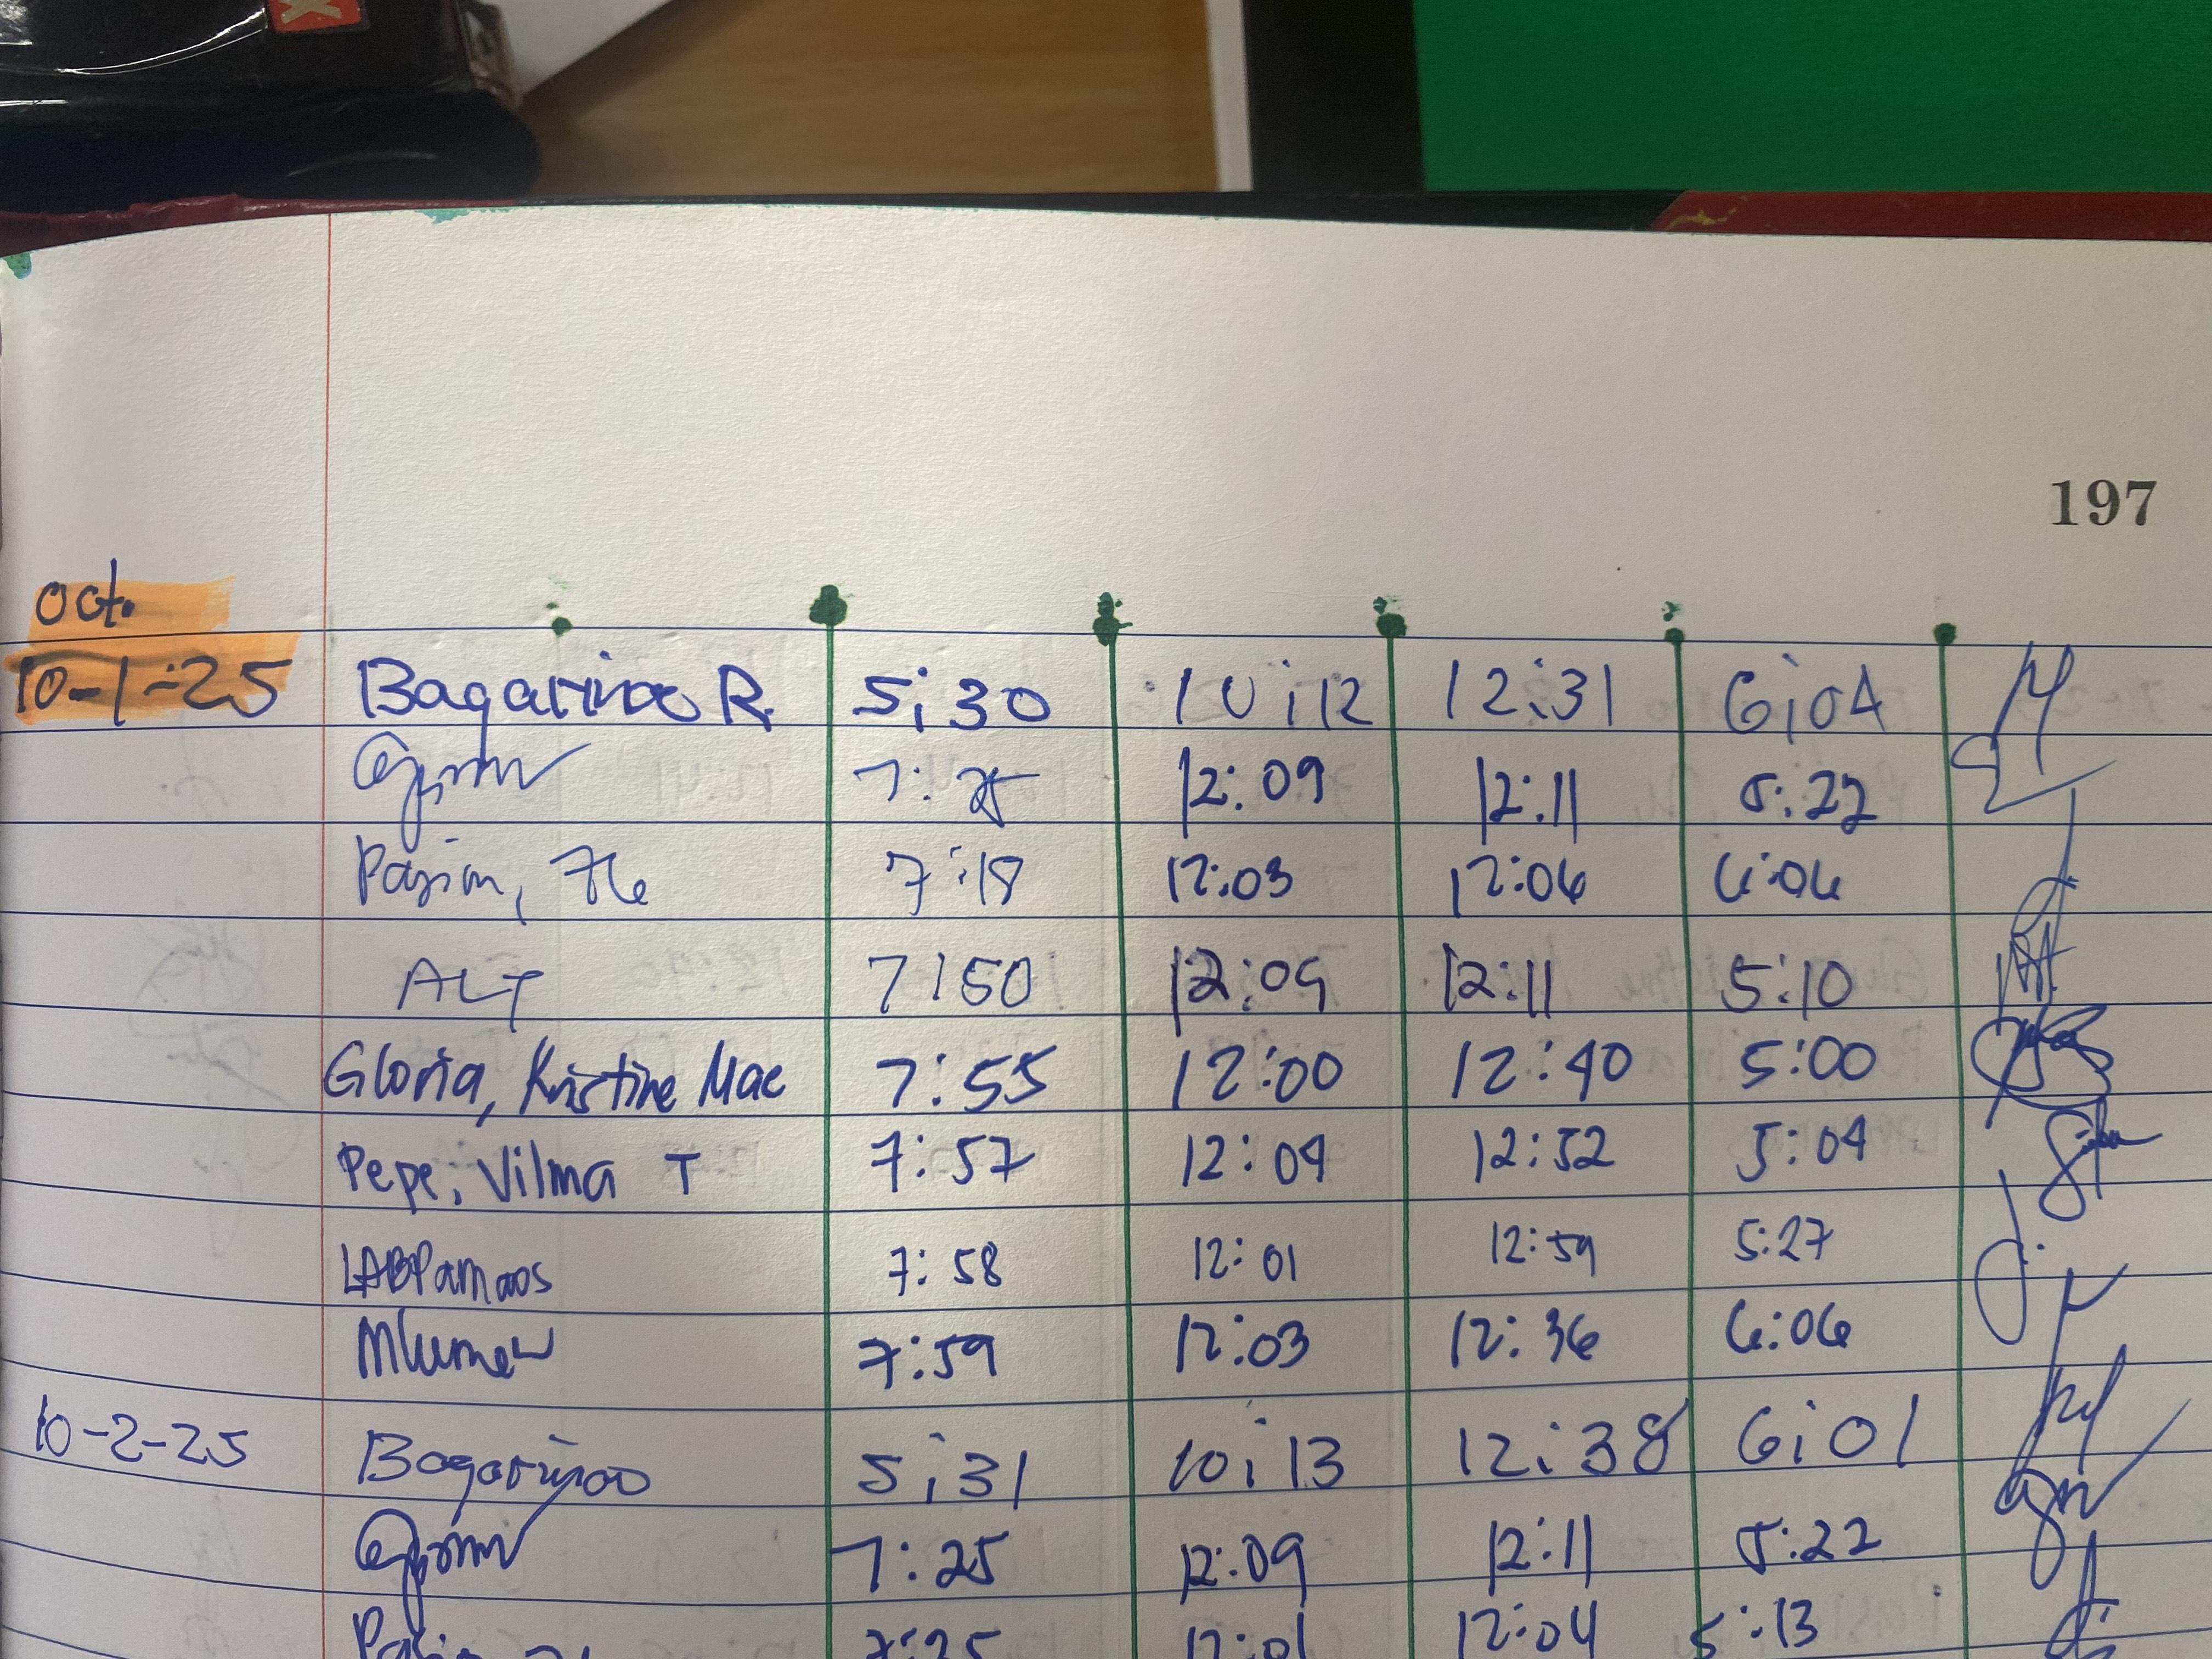 197
Oct.
10-1-25 Bagarinao R. 5:30 10:12 12:31 6:04
7: 12:09 12:11 5:22
7:18 12:03 12:06 6:06
ALT 7:50 12:09 12:11 5:10
Gloria, Kristine Mae 7:55 12:00 12:40 5:00
Pepe, Vilma T 7:57 12:04 12:52 5:04
7:58 12:01 12:59 5:27
7:59 12:03 12:36 6:06
10-2-25 Bagarinao 5:31 10:13 12:38 6:01
7:25 12:09 12:11 5:22
7:25 12:01 12:04 5:13